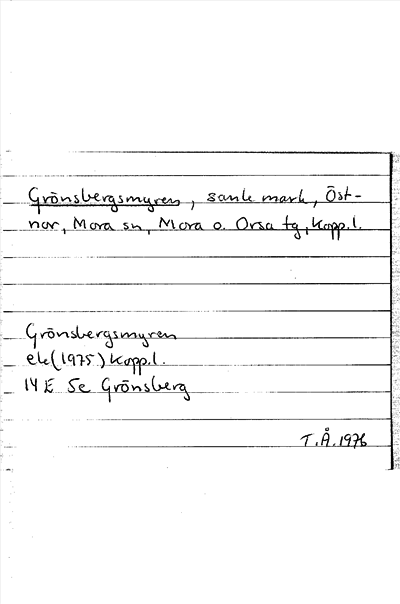 Grönsbergsmyren, sank mark, Öst-
nor, Mora sn, Mora o. Orsa tg, Kopp.l.
Grönsbergsmyren
ek (1975) Kopp.l.
14 E 5e Grönsberg
T.Å. 1976